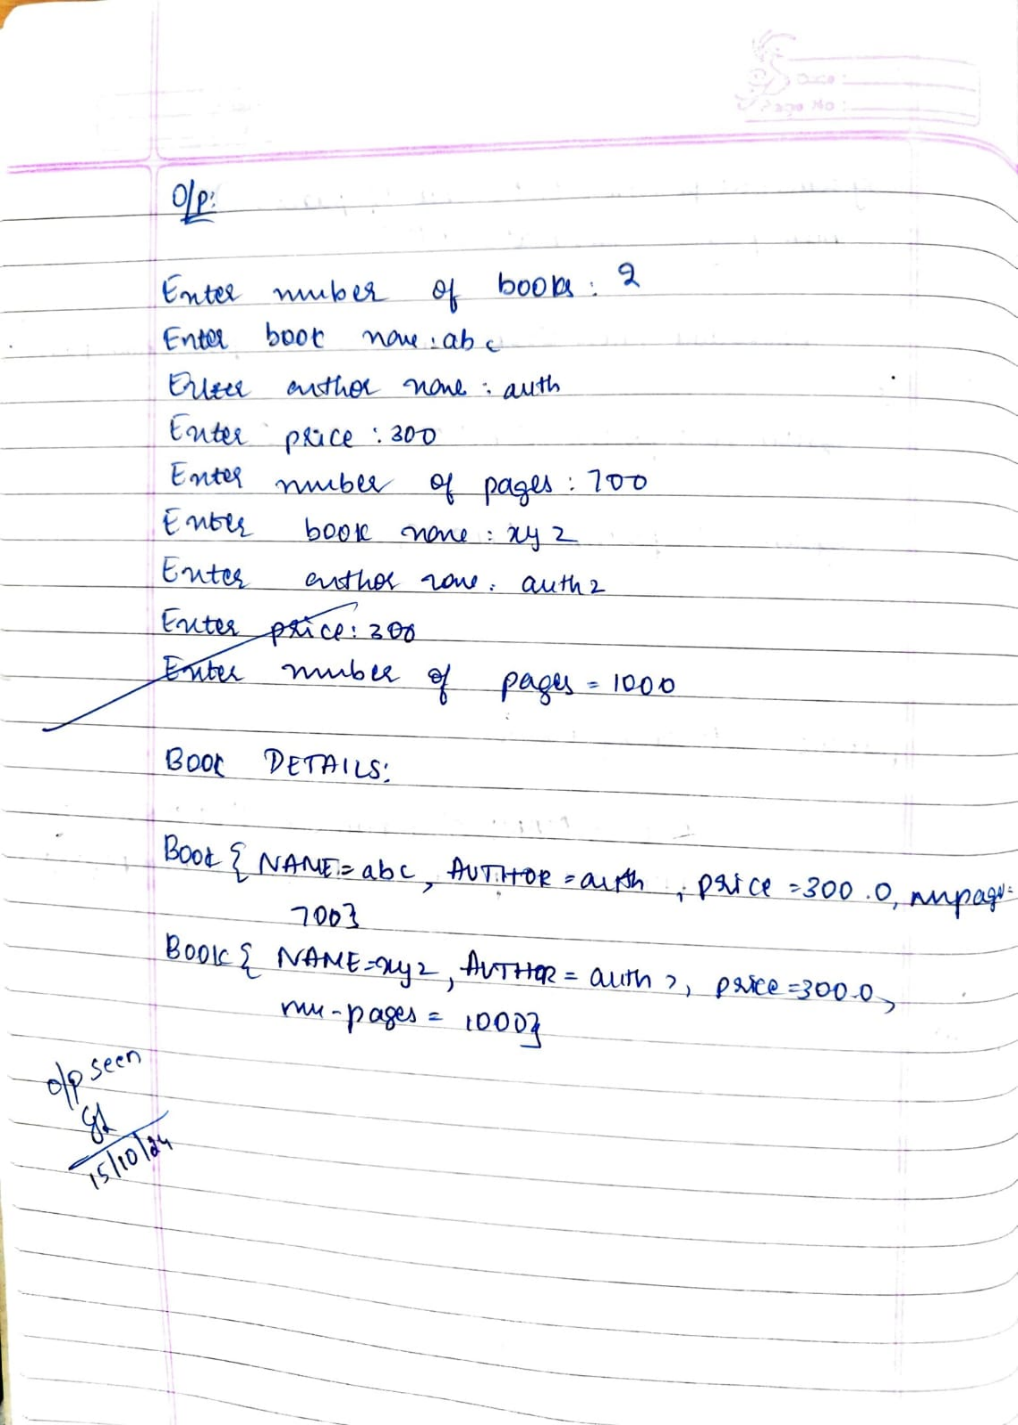 Date :
Page No :
O/p:
Enter number of books : 2
Enter book name : abc
Enter author name : auth
Enter price : 300
Enter number of pages : 700
Enter book name : xyz
Enter author name : auth2
Enter price : 300
Enter number of pages = 1000
BOOK DETAILS:
Book { NAME = abc, AUTHOR = auth , price = 300.0, numpages=
700}
Book { NAME=xyz, AUTHOR = auth2, price =300.0,
num-pages = 1000}
o/p seen
15/10/24